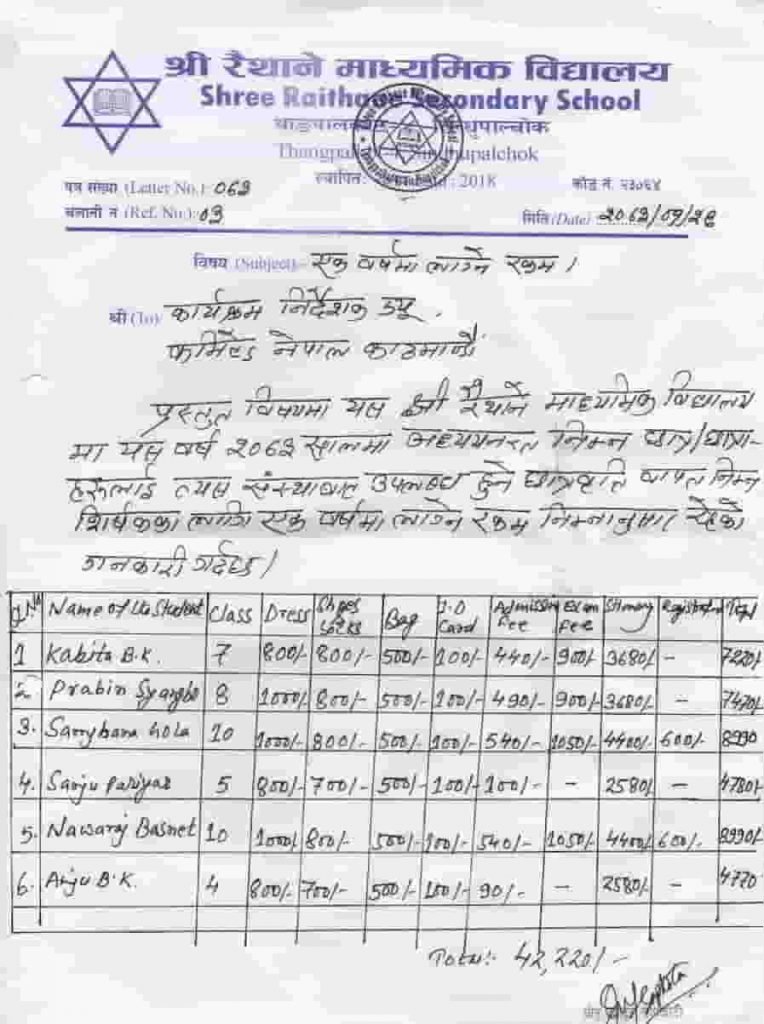 श्री रैथाने माध्यमिक विद्यालय
Shree Raithane Secondary School
थाङपालकोट सिन्धुपाल्चोक
Thangpalkot Sindhupalchok
स्थापित: 2018
पत्र संख्या (Letter No.): 063
कोड नं. २३०६४
चलानी नं (Ref. No.): 03
मिति (Date) २०६३/०१/२६
विषय (Subject):- एक वर्षमा लाग्ने रकम।
श्री (To) कार्यक्रम निर्देशक ज्यू,
नेपाल काठमाण्डौं
प्रस्तुत विषयमा यस श्री रैथाने माध्यमिक विद्यालय
मा यस वर्ष २०६३ सालमा अध्ययनरत निम्न छात्र/छात्रा-
हरुलाई त्यस संस्थाबाट उपलब्ध हुने छात्रवृत्ति वापत निम्न
शिर्षकका लागि एक वर्षमा लाग्ने रकम निम्नानुसार रहेको
जानकारी गर्दछु।
S.N Name of the Student Class Dress Shoes Socks Bag I.D Card Admission Fee Exam Fee Stionary Registration Total
1 Kabita B.K. 7 800/- 800/- 500/- 100/- 440/- 900/- 3680/- - 7220/-
2. Prabin Syangbo 8 1000/- 800/- 500/- 100/- 490/- 900/- 3680/- - 7470/-
3. 10 1000/- 800/- 500/- 100/- 540/- 1050/- 4400/- 600/- 8990
4. Sanju Pariyar 5 800/- 700/- 500/- 100/- 100/- - 2580/- - 4780/-
5. Nawaraj Basnet 10 1000/- 800/- 500/- 100/- 540/- 1050/- 4400/- 600/- 8990/-
6. Anju B.K. 4 800/- 700/- 500/- 100/- 90/- - 2580/- - 4770
Total:- 42,220/-